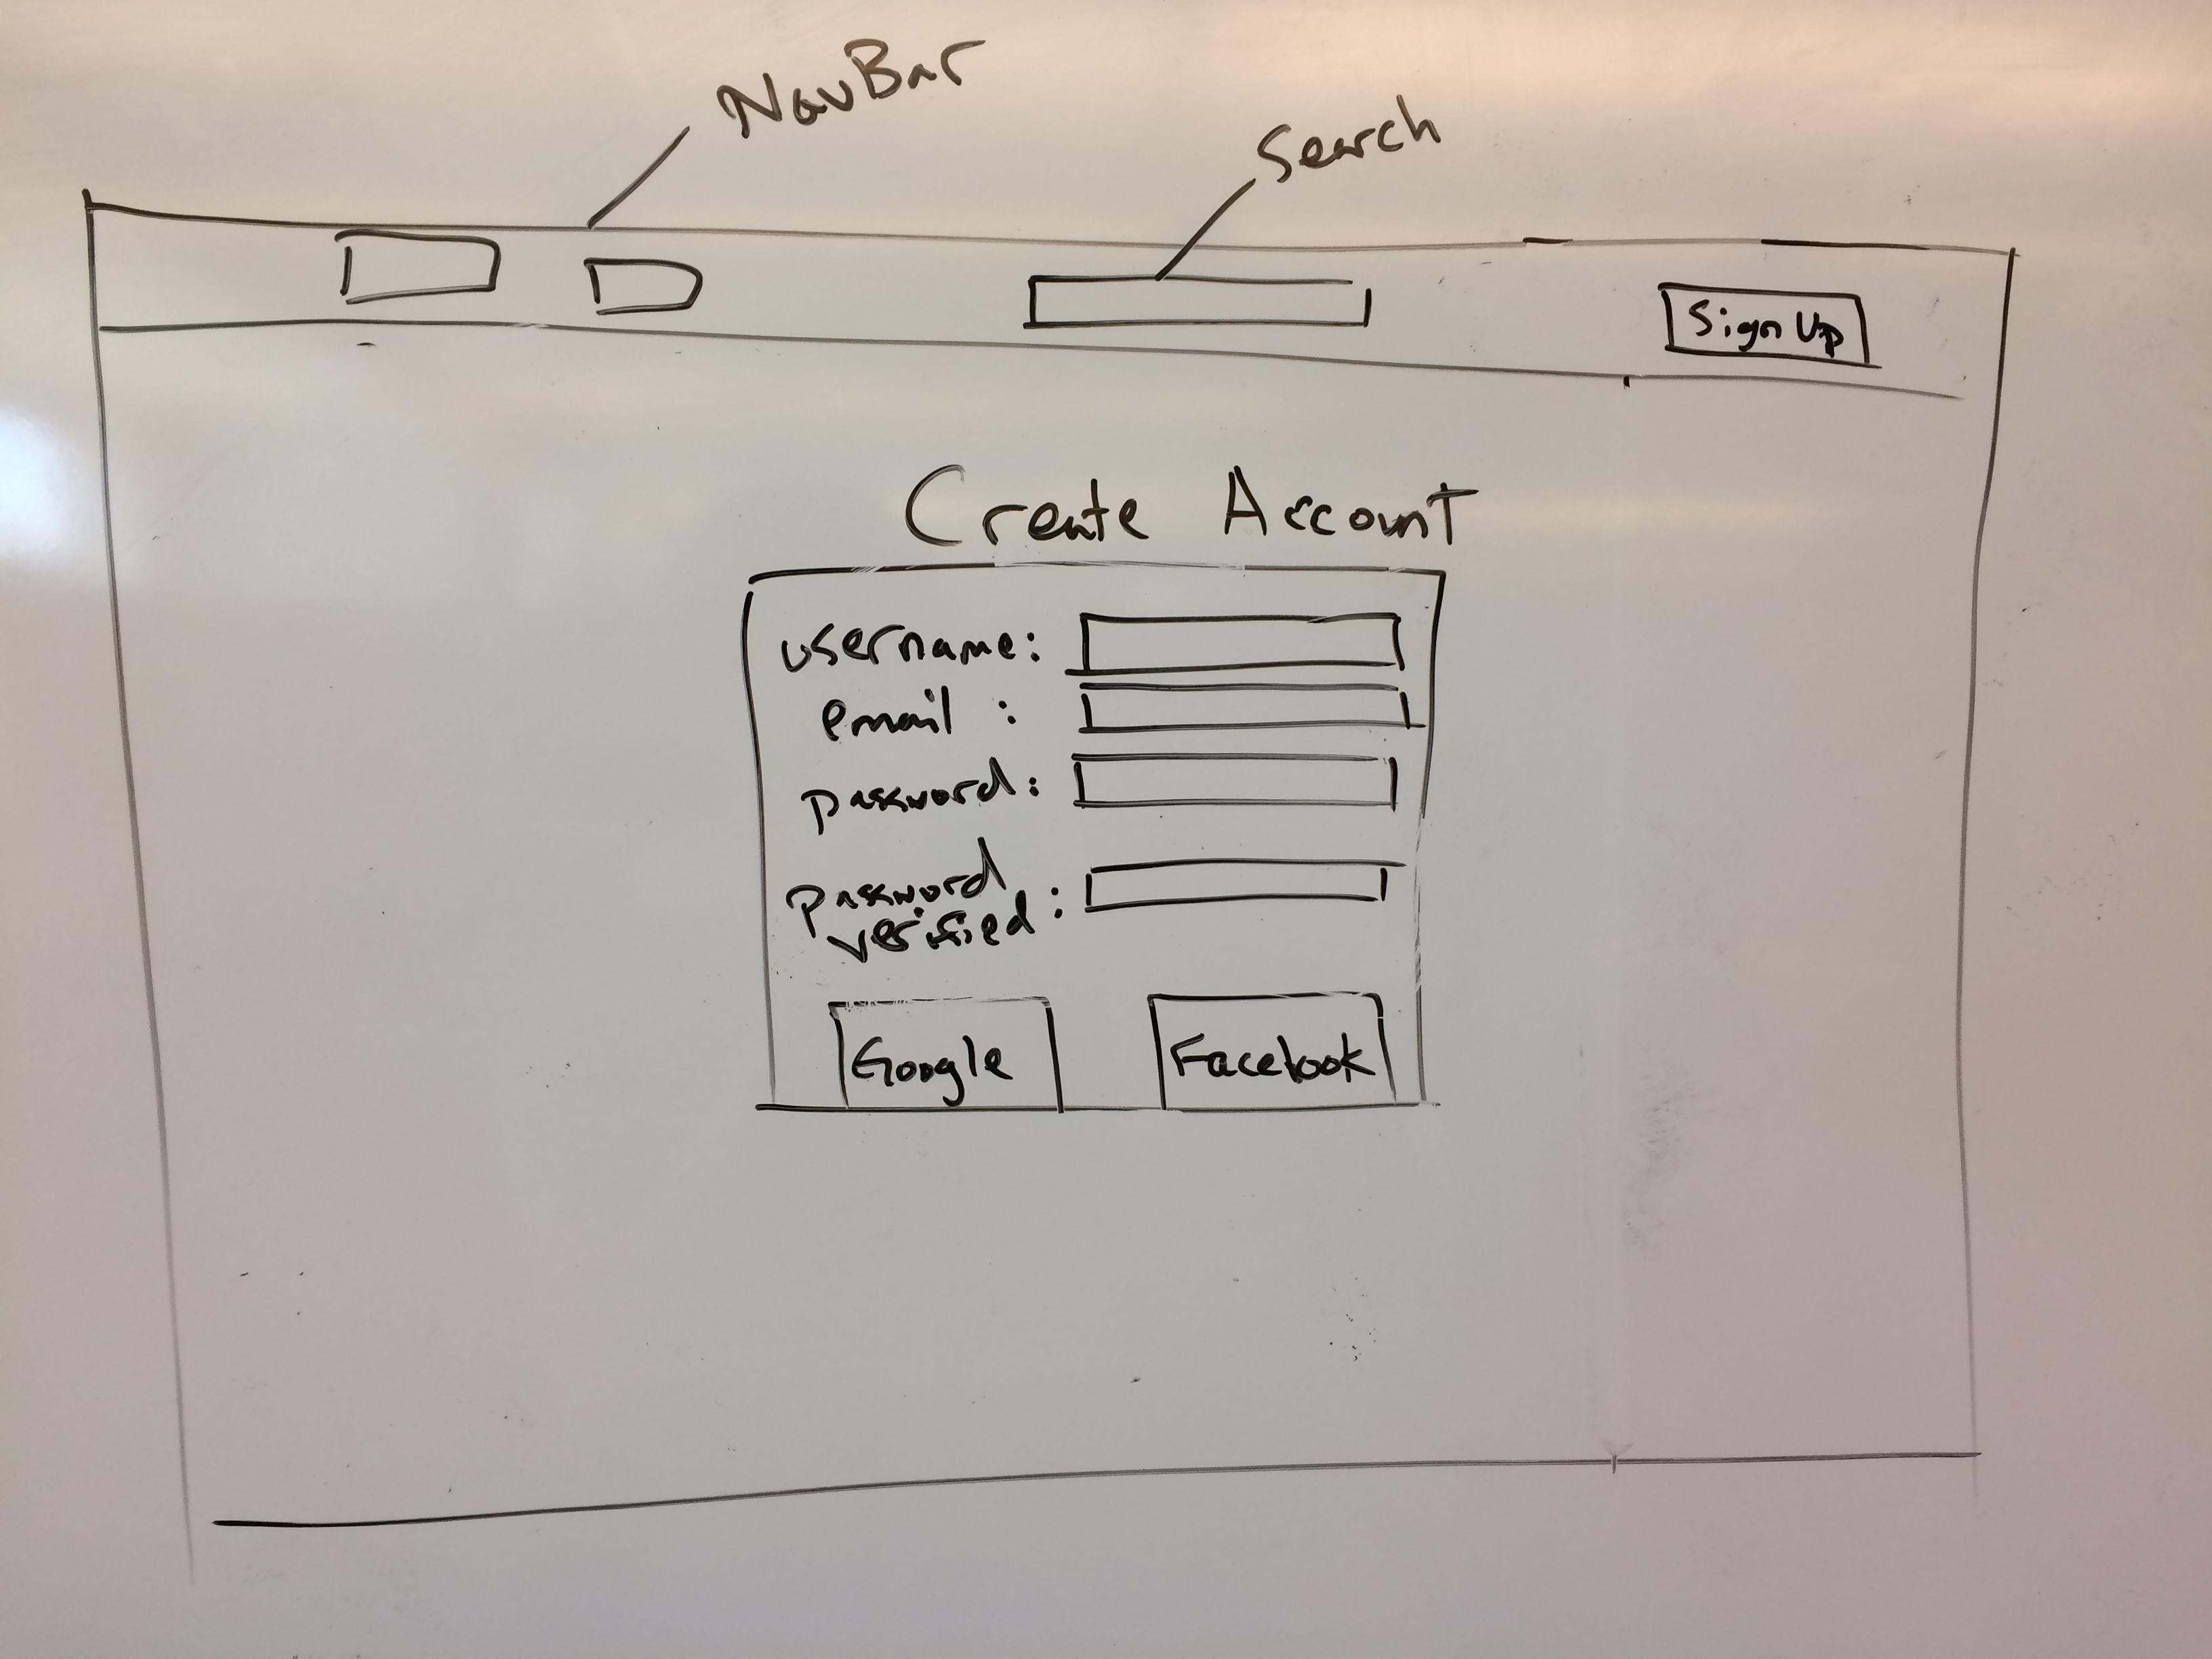 NavBar
Search
Sign Up
Create Account
username:
email :
password:
password
verified:
Google
Facebook